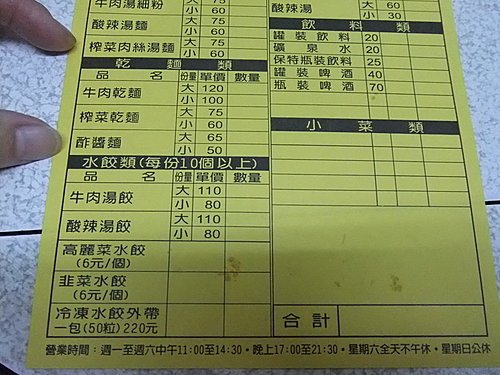 牛肉湯細粉 大 75
小 60
酸辣湯麵 大 75
小 60
榨菜肉絲湯麵 大 75
小 60
乾麵類
品名 份量 單價 數量
牛肉乾麵 大 120
小 100
榨菜乾麵 大 75
小 60
酢醬麵 大 65
小 50
水餃類(每份10個以上)
品名 份量 單價 數量
牛肉湯餃 大 110
小 80
酸辣湯餃 大 110
小 80
高麗菜水餃
(6元/個)
韭菜水餃
(6元/個)
冷凍水餃外帶
一包(50粒)220元
酸辣湯 大 60
小 30
飲料類
罐裝飲料 20
礦泉水 20
保特瓶裝飲料 25
罐裝啤酒 40
瓶裝啤酒 70
小菜類
合計
營業時間:週一至週六中午11:00至14:30・晚上17:00至21:30・星期六全天不午休・星期日公休